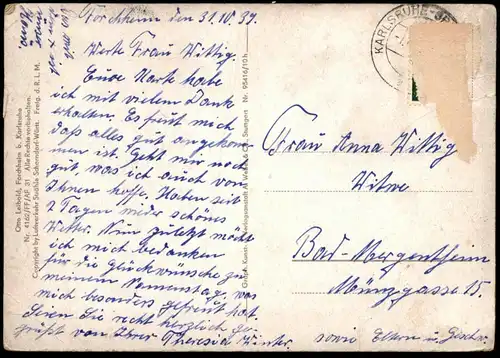 Forchheim den 31.10.39.
Werte Frau Wittig.
Eure Karte habe
ich mit vielem Dank
erhalten. Es freut mich,
daß alles gut angekom-
men ist. Geht mir noch
gut, was ich auch von
Ihnen hoffe. Haben seit
2 Tagen wieder schönes
Wetter. Nun zuletzt möcht
ich mich bedanken
für die Glückwünsche zu
meinem Namenstag, was
mich besonders gefreut hat.
Seien Sie recht herzlich ge-
grüßt von Ihrer Theresia
sowie Eltern u. Geschw.
Otto Leibold, Forchheim b. Karlsruhe
Nr. 4160/FF/AF 31 Alle Rechte vorbehalten. Freig. d. R.L.M.
Copyright by Luftverkehr Strähle Schorndorf-Württ.
Stuttgart Nr. 95416/10h
KARLSRUHE
Frau Anna Wittig
Witwe
Bad-Mergentheim
Münzgasse 15.